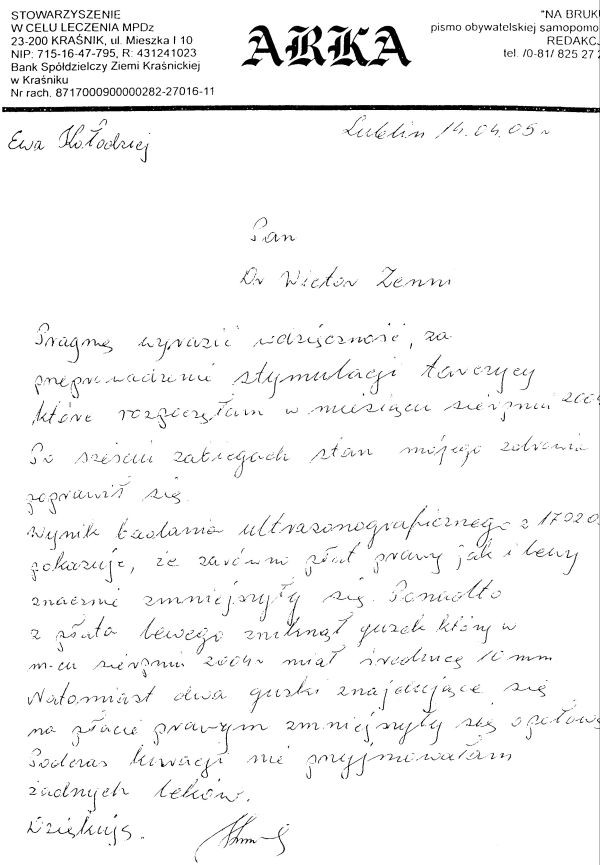 STOWARZYSZENIE
W CELU LECZENIA MPDz
23-200 KRAŚNIK, ul. Mieszka I 10
NIP: 715-16-47-795, R: 431241023
Bank Spółdzielczy Ziemi Kraśnickiej
w Kraśniku
Nr rach. 8717000900000282-27016-11
ARKA
"NA BRUKU
pismo obywatelskiej samopomo
REDAKCJ
tel. /0-81/ 825 27 2
Ewa Kołodziej
Lublin 14.04.05r
Pan
Dr Wictor Zenni
Pragnę wyrazić wdzięczność, za
przeprowadzenie stymulacji tarczycy
które rozpoczęłam w miesiącu sierpniu 2004
Po sześciu zabiegach stan mojego zdrowia
poprawił się.
Wynik badania ultrasonograficznego z 17020
pokazuje, że zarówno płat prawy jak i lewy
znacznie zmniejszyły się. Ponadto
z płata lewego zniknął guzek który w
m-cu sierpniu 2004r miał średnicę 10 mm
Natomiast dwa guzki znajdujące się
na płacie prawym zmniejszyły się o połowę
Podczas kuracji nie przyjmowałam
żadnych leków.
Dziękuję.